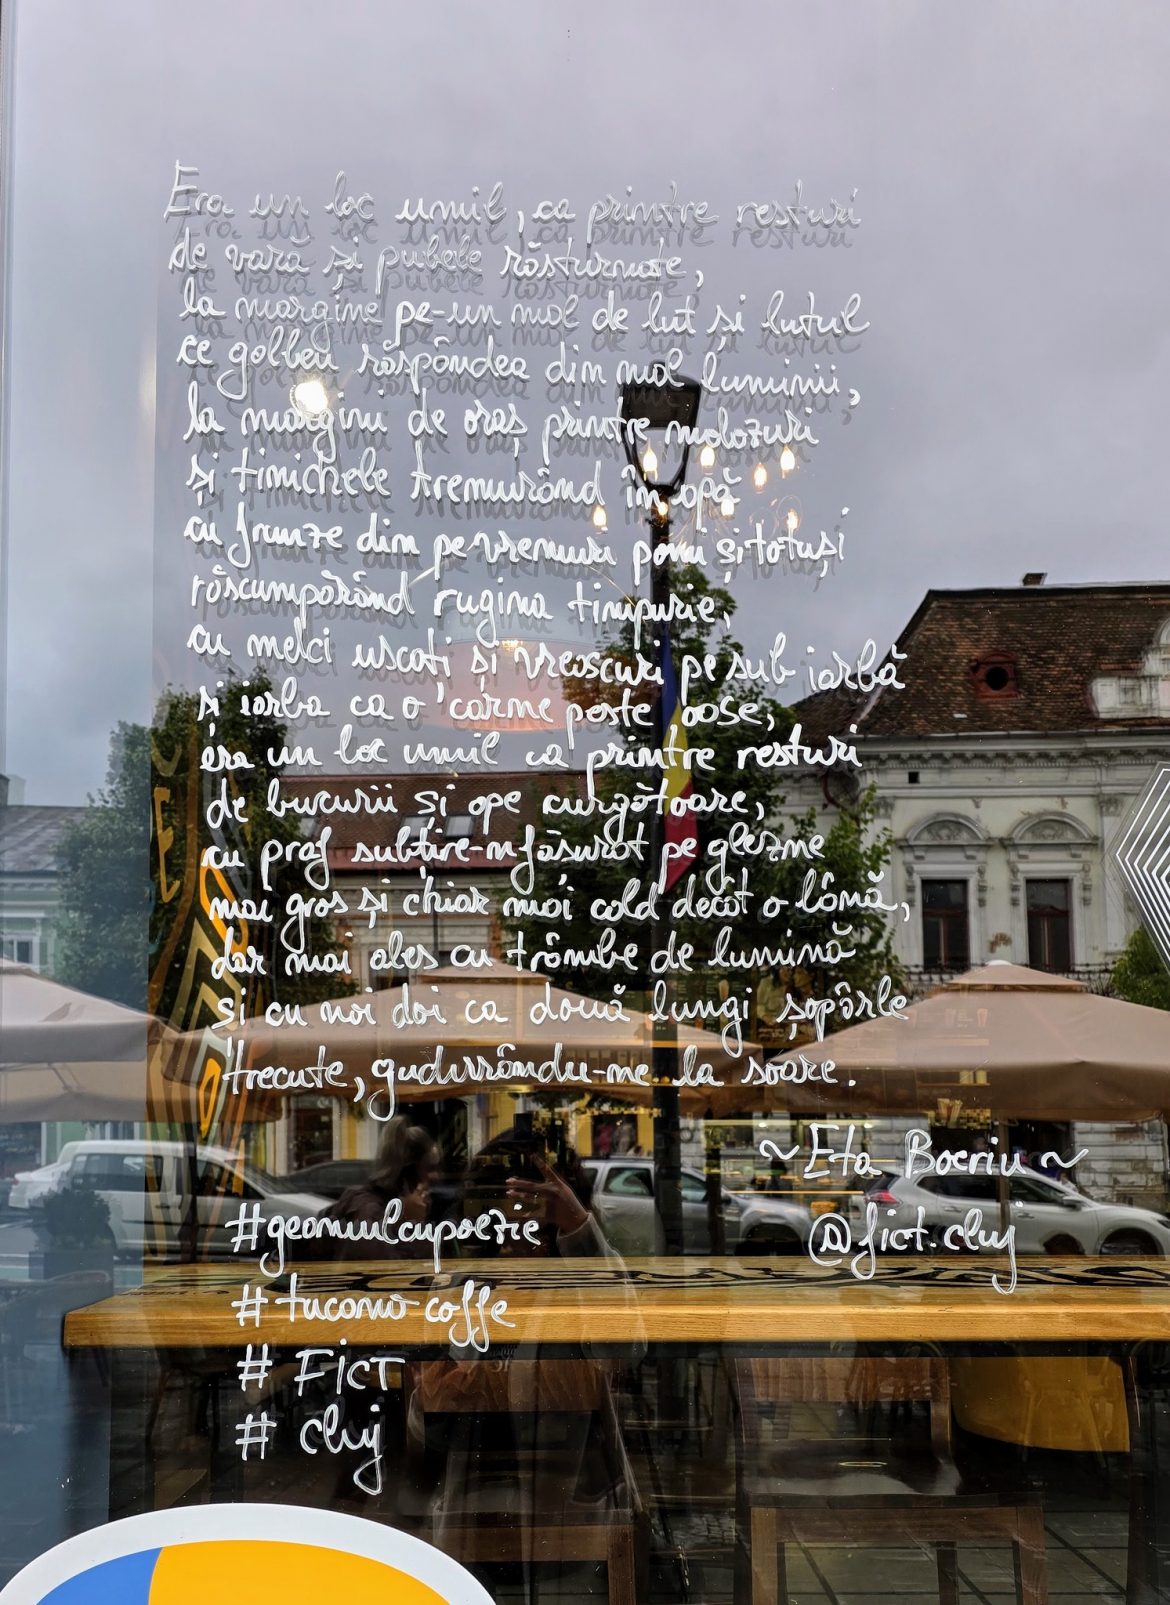 Era un loc umil, ca printre resturi
de vară și pubele răsturnate,
la margine pe-un mal de lut și lutul
ce galben răspândea din mal luminii,
la margini de oraș printre molozuri
și tinichele tremurând în apă
cu frunze din pe vremuri pomi și totuși
răscumpărând rugina timpurie,
cu melci uscați și vreascuri pe sub iarbă
și iarba ca o carne peste oase,
era un loc umil ca printre resturi
de bucurii și ape curgătoare,
cu praf subțire-nfășurat pe glezne
mai gros și chiar mai cald decât o lână,
dar mai ales cu trâmbe de lumină
și cu noi doi ca două lungi șopârle
trecute, gudurându-ne la soare.
~Eta Boeriu~
@fict.cluj
#geamulcupoezie
#tucanocoffe
# FicT
# cluj